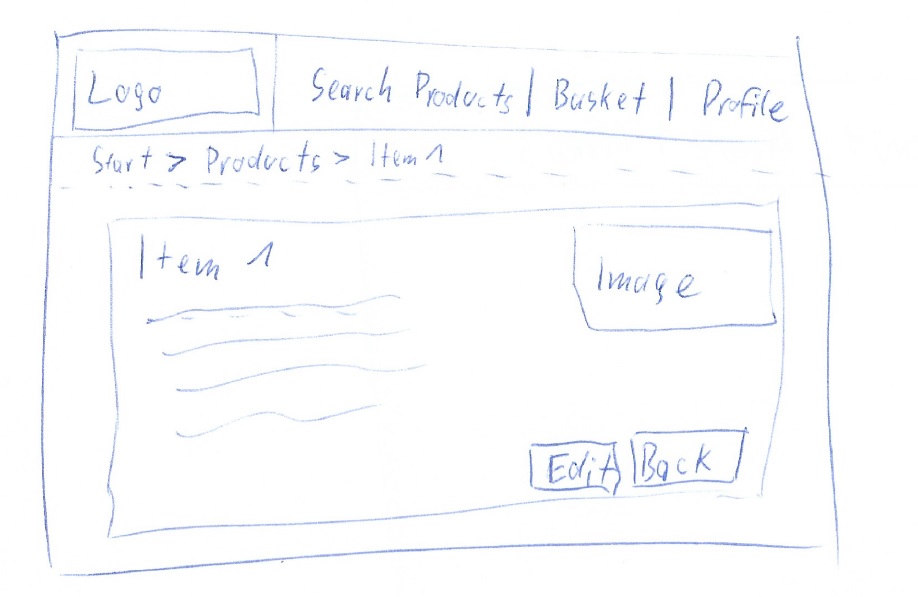 Logo
Search Products | Basket | Profile
Start > Products > Item 1
Item 1
Image
Edit
Back